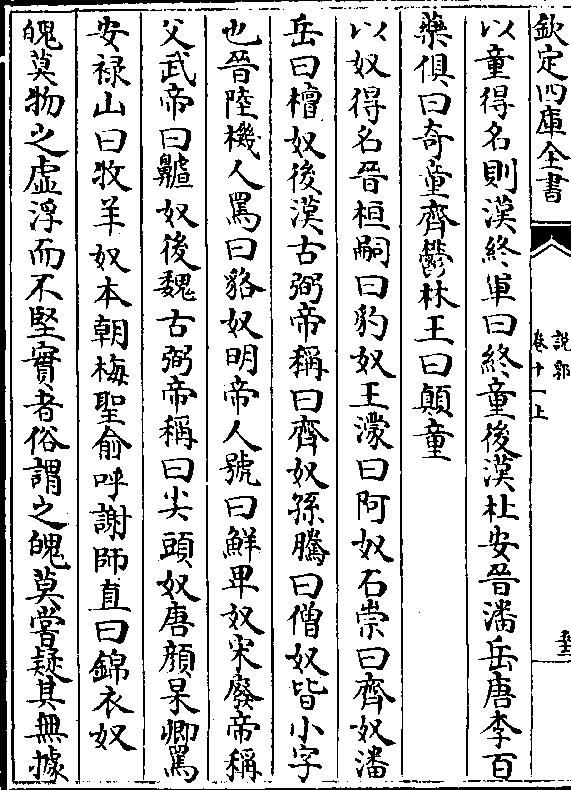 欽定四庫全書
說郛
卷十一上
以童得名則漢終軍曰終童後漢杜安晉潘岳唐李百
藥俱曰奇童齊鬱林王曰顛童
以奴得名晉桓嗣曰豹奴王濛曰阿奴石崇曰齊奴潘
岳曰檀奴後漢古弼帝稱曰齊奴孫騰曰僧奴皆小字
也晉陸機人罵曰貉奴明帝人號曰鮮卑奴宋廢帝稱
父武帝曰齇奴後魏古弼帝稱曰尖頭奴唐顔杲卿罵
安祿山曰牧羊奴本朝梅聖俞呼謝師直曰錦衣奴
䰟莫物之虛浮而不堅實者俗謂之䰟莫嘗疑其無據